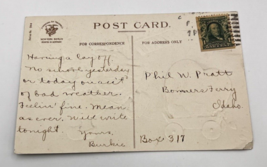 POST CARD.
FOR CORRESPONDENCE
FOR ADDRESS ONLY
Having a lay off
No work yesterday
or today on acc't
of bad weather.
Feelin' fine. Mean
as ever. Will write
tonight
Yours,
Phil W. Pratt
Bonners Ferry
Idaho
Box 317